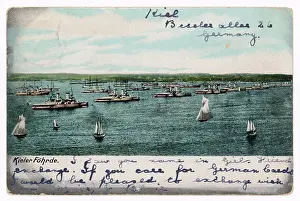 Kiel
Beseler allee 26
Germany.
Kieler Föhrde.
I saw you name in Girls Friend
exchange. If you care for German Cards
would be pleased to exchange with